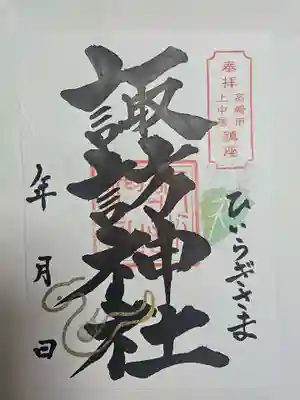 奉拝
高崎市
上中居
鎮座
諏訪神社
ひいらぎさま
年 月 日